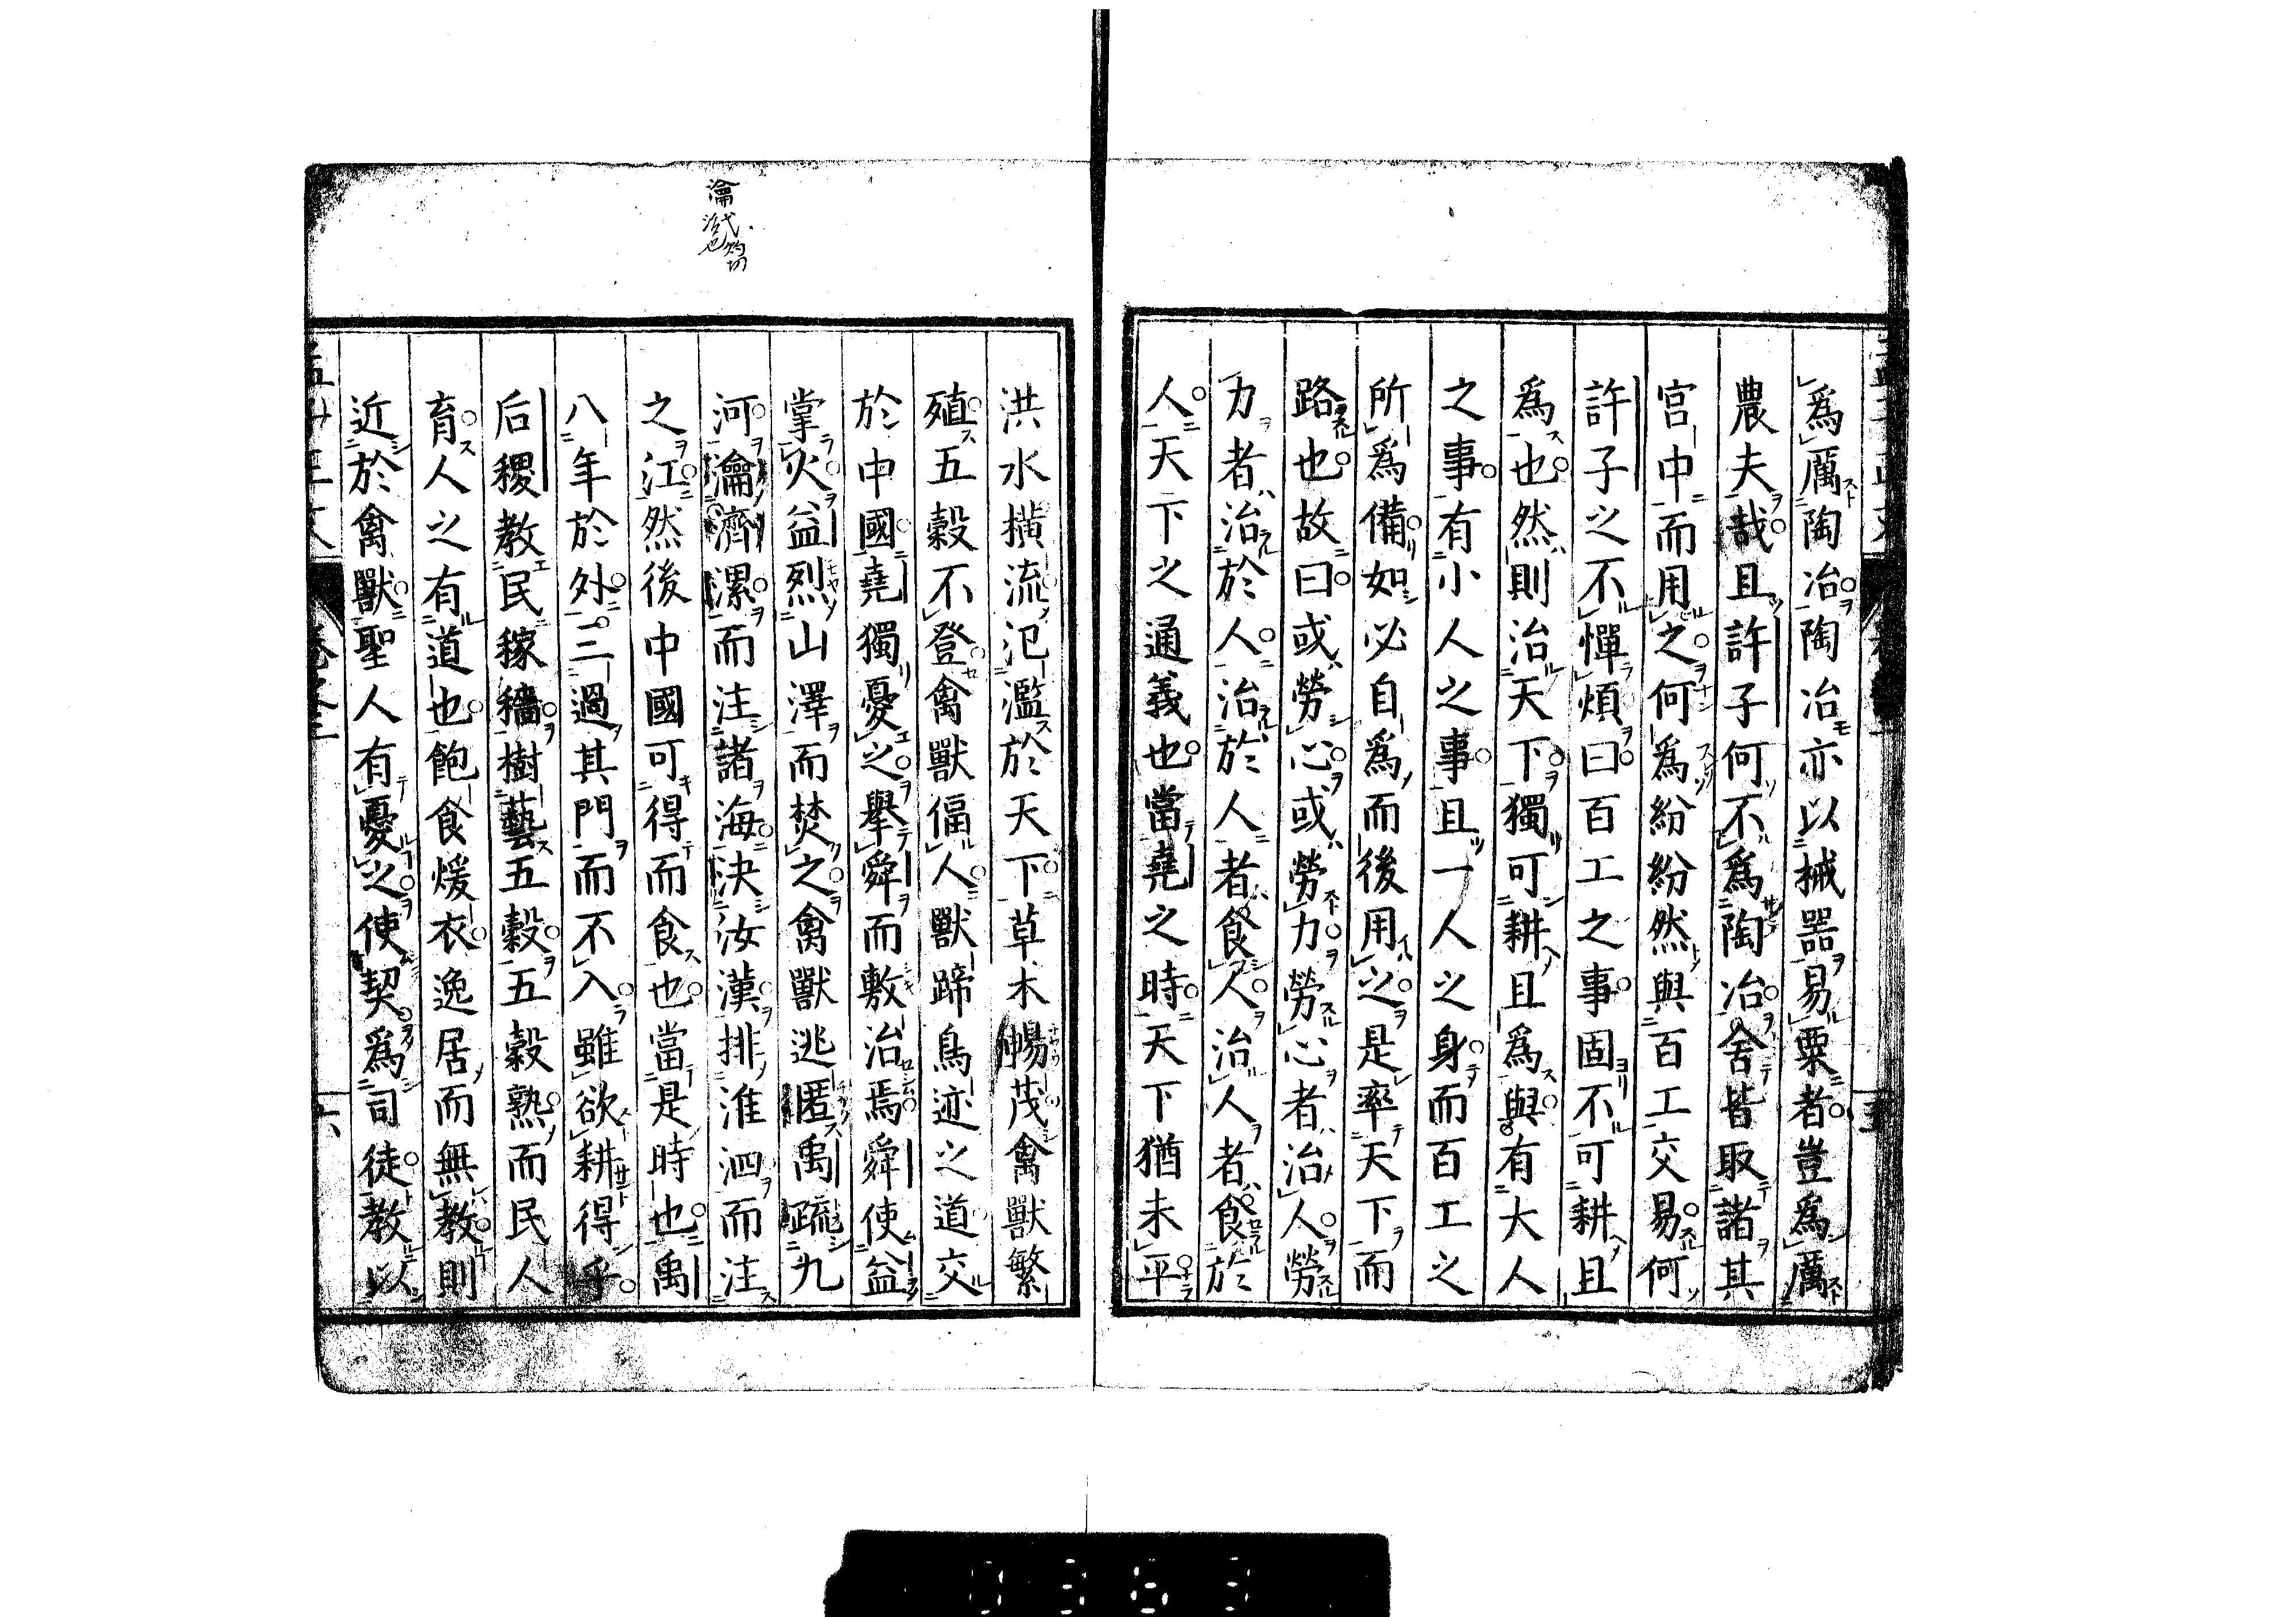 爲厲陶冶陶冶亦以械器易粟者豈爲厲
農夫哉且許子何不爲陶冶舍皆取諸其
宮中而用之何爲紛紛然與百工交易何
許子之不憚煩曰百工之事固不可耕且
爲也然則治天下獨可耕且爲與有大人
之事有小人之事且一人之身而百工之
所爲備如必自爲而後用之是率天下而
路也故曰或勞心或勞力勞心者治人勞
力者治於人治於人者食人治人者食於
人天下之通義也當堯之時天下猶未平
瀹
弋灼切
治也
洪水橫流氾濫於天下草木暢茂禽獸繁
殖五穀不登禽獸偪人獸蹄鳥迹之道交
於中國堯獨憂之舉舜而敷治焉舜使益
掌火益烈山澤而焚之禽獸逃匿禹疏九
河瀹濟漯而注諸海決汝漢排淮泗而注
之江然後中國可得而食也當是時也禹
八年於外三過其門而不入雖欲耕得乎
后稷教民稼穡樹藝五穀五穀熟而民人
育人之有道也飽食煖衣逸居而無教則
近於禽獸聖人有憂之使契爲司徒教以
0363